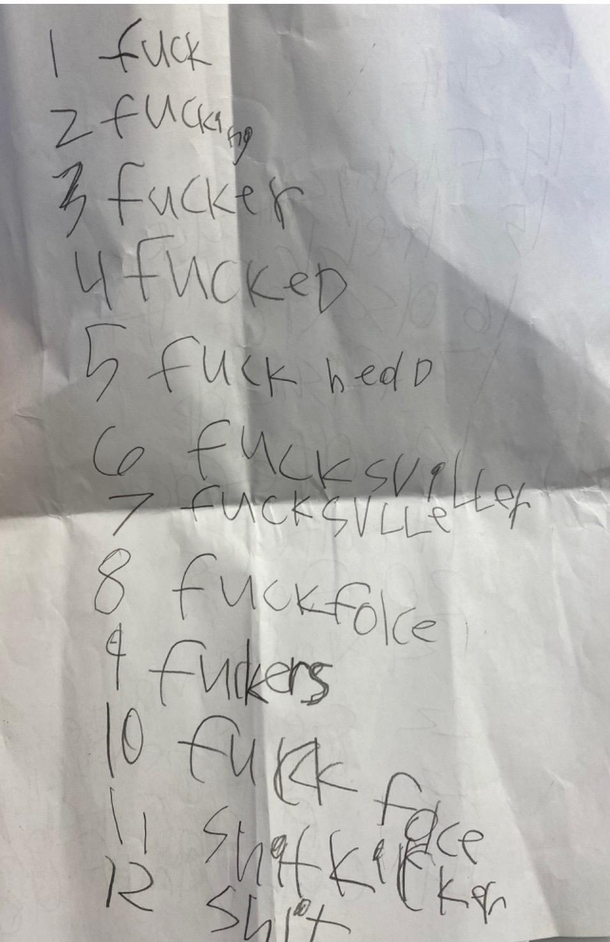 1 fuck
2 fucking
3 fucker
4 fuckeD
5 fuck hedD
6 fucksviller
7 fucksvLLe
8 fuckface
9 fuckers
10 fuck face
11 shitkicker
12 shit